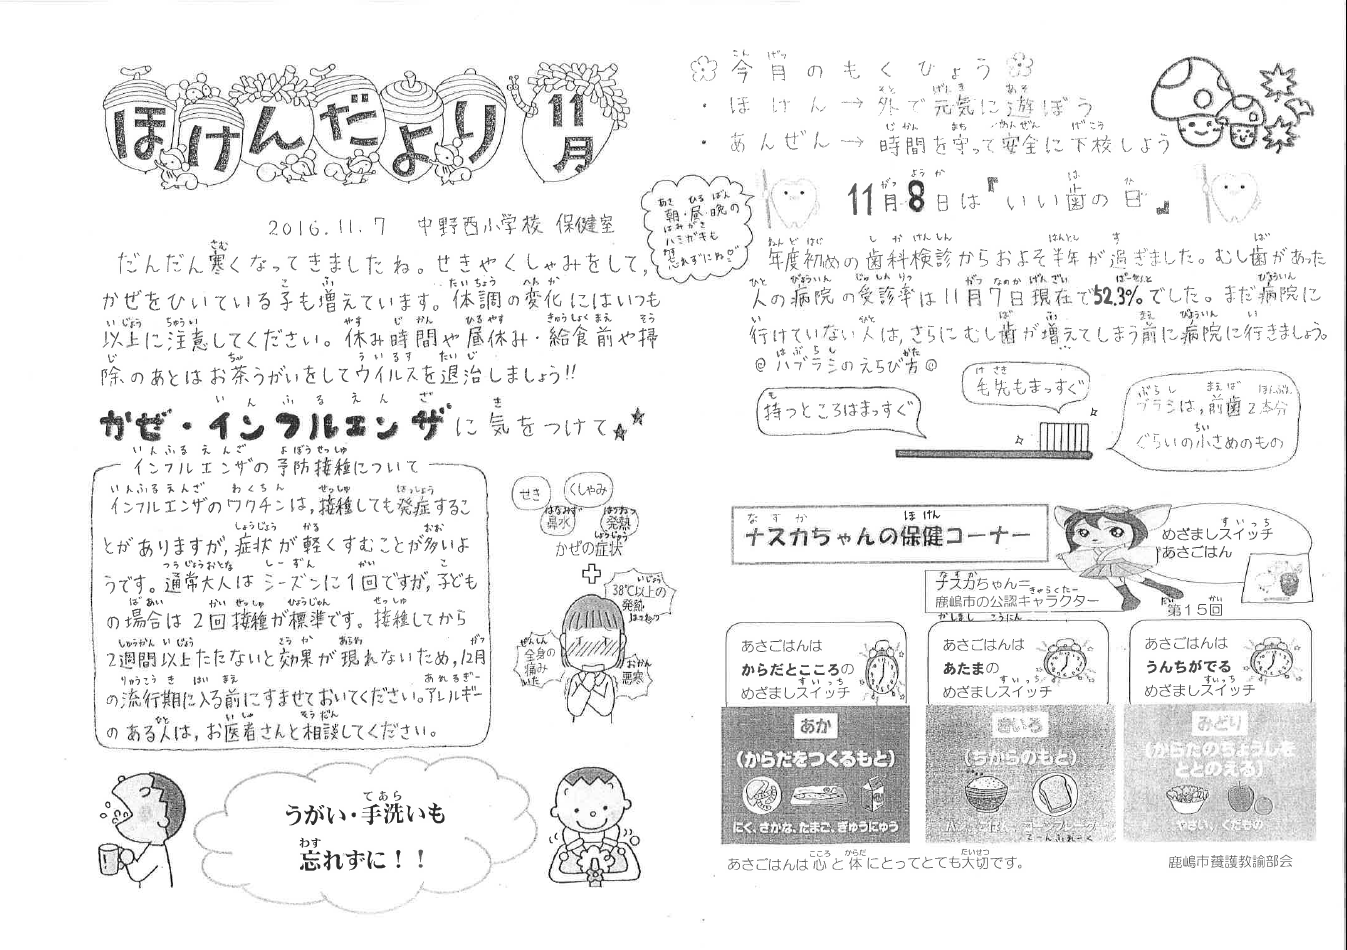 ほけんだより 11月
2016.11.7 中野西小学校 保健室
だんだん寒くなってきましたね。せきやくしゃみをして、
かぜをひいている子も増えています。体調の変化にはいつも
以上に注意してください。休み時間や昼休み・給食前や掃
除のあとはお茶うがいをしてウイルスを退治しましょう!!
かぜ・インフルエンザに気をつけて
インフルエンザの予防接種について
インフルエンザのワクチンは、接種しても発症するこ
とがありますが、症状が軽くすむことが多いよ
うです。通常大人はシーズンに1回ですが、子ども
の場合は2回接種が標準です。接種してから
2週間以上たたないと効果が現れないため、12月
の流行期に入る前にすませておいてください。アレルギー
のある人は、お医者さんと相談してください。
せき
くしゃみ
鼻水
発熱
かぜの症状
+
38℃以上の
発熱
全身の
痛み
悪寒
うがい・手洗いも
忘れずに!!
今月のもくひょう
・ほけん→外で元気に遊ぼう
・あんぜん→時間を守って安全に下校しよう
朝・昼・晩の
ハミガキも
忘れずにね
11月8日は『いい歯の日』
年度初めの歯科検診からおよそ半年が過ぎました。むし歯があった
人の病院の受診率は11月7日現在で52.3%でした。まだ病院に
行けていない人は、さらにむし歯が増えてしまう前に病院に行きましょう。
◎ハブラシのえらび方◎
持つところはまっすぐ
毛先もまっすぐ
ブラシは、前歯2本分
ぐらいの小さめのもの
ナスカちゃんの保健コーナー
めざましスイッチ
あさごはん
ナスカちゃん=
鹿嶋市の公認キャラクター
第15回
あさごはんは
からだとこころの
めざましスイッチ
あさごはんは
あたまの
めざましスイッチ
あさごはんは
うんちがでる
めざましスイッチ
あか
(からだをつくるもと)
にく、さかな、たまご、ぎゅうにゅう
きいろ
(ちからのもと)
みどり
(からだのちょうしを
ととのえる)
やさい、くだもの
あさごはんは心と体にとってとても大切です。
鹿嶋市養護教諭部会